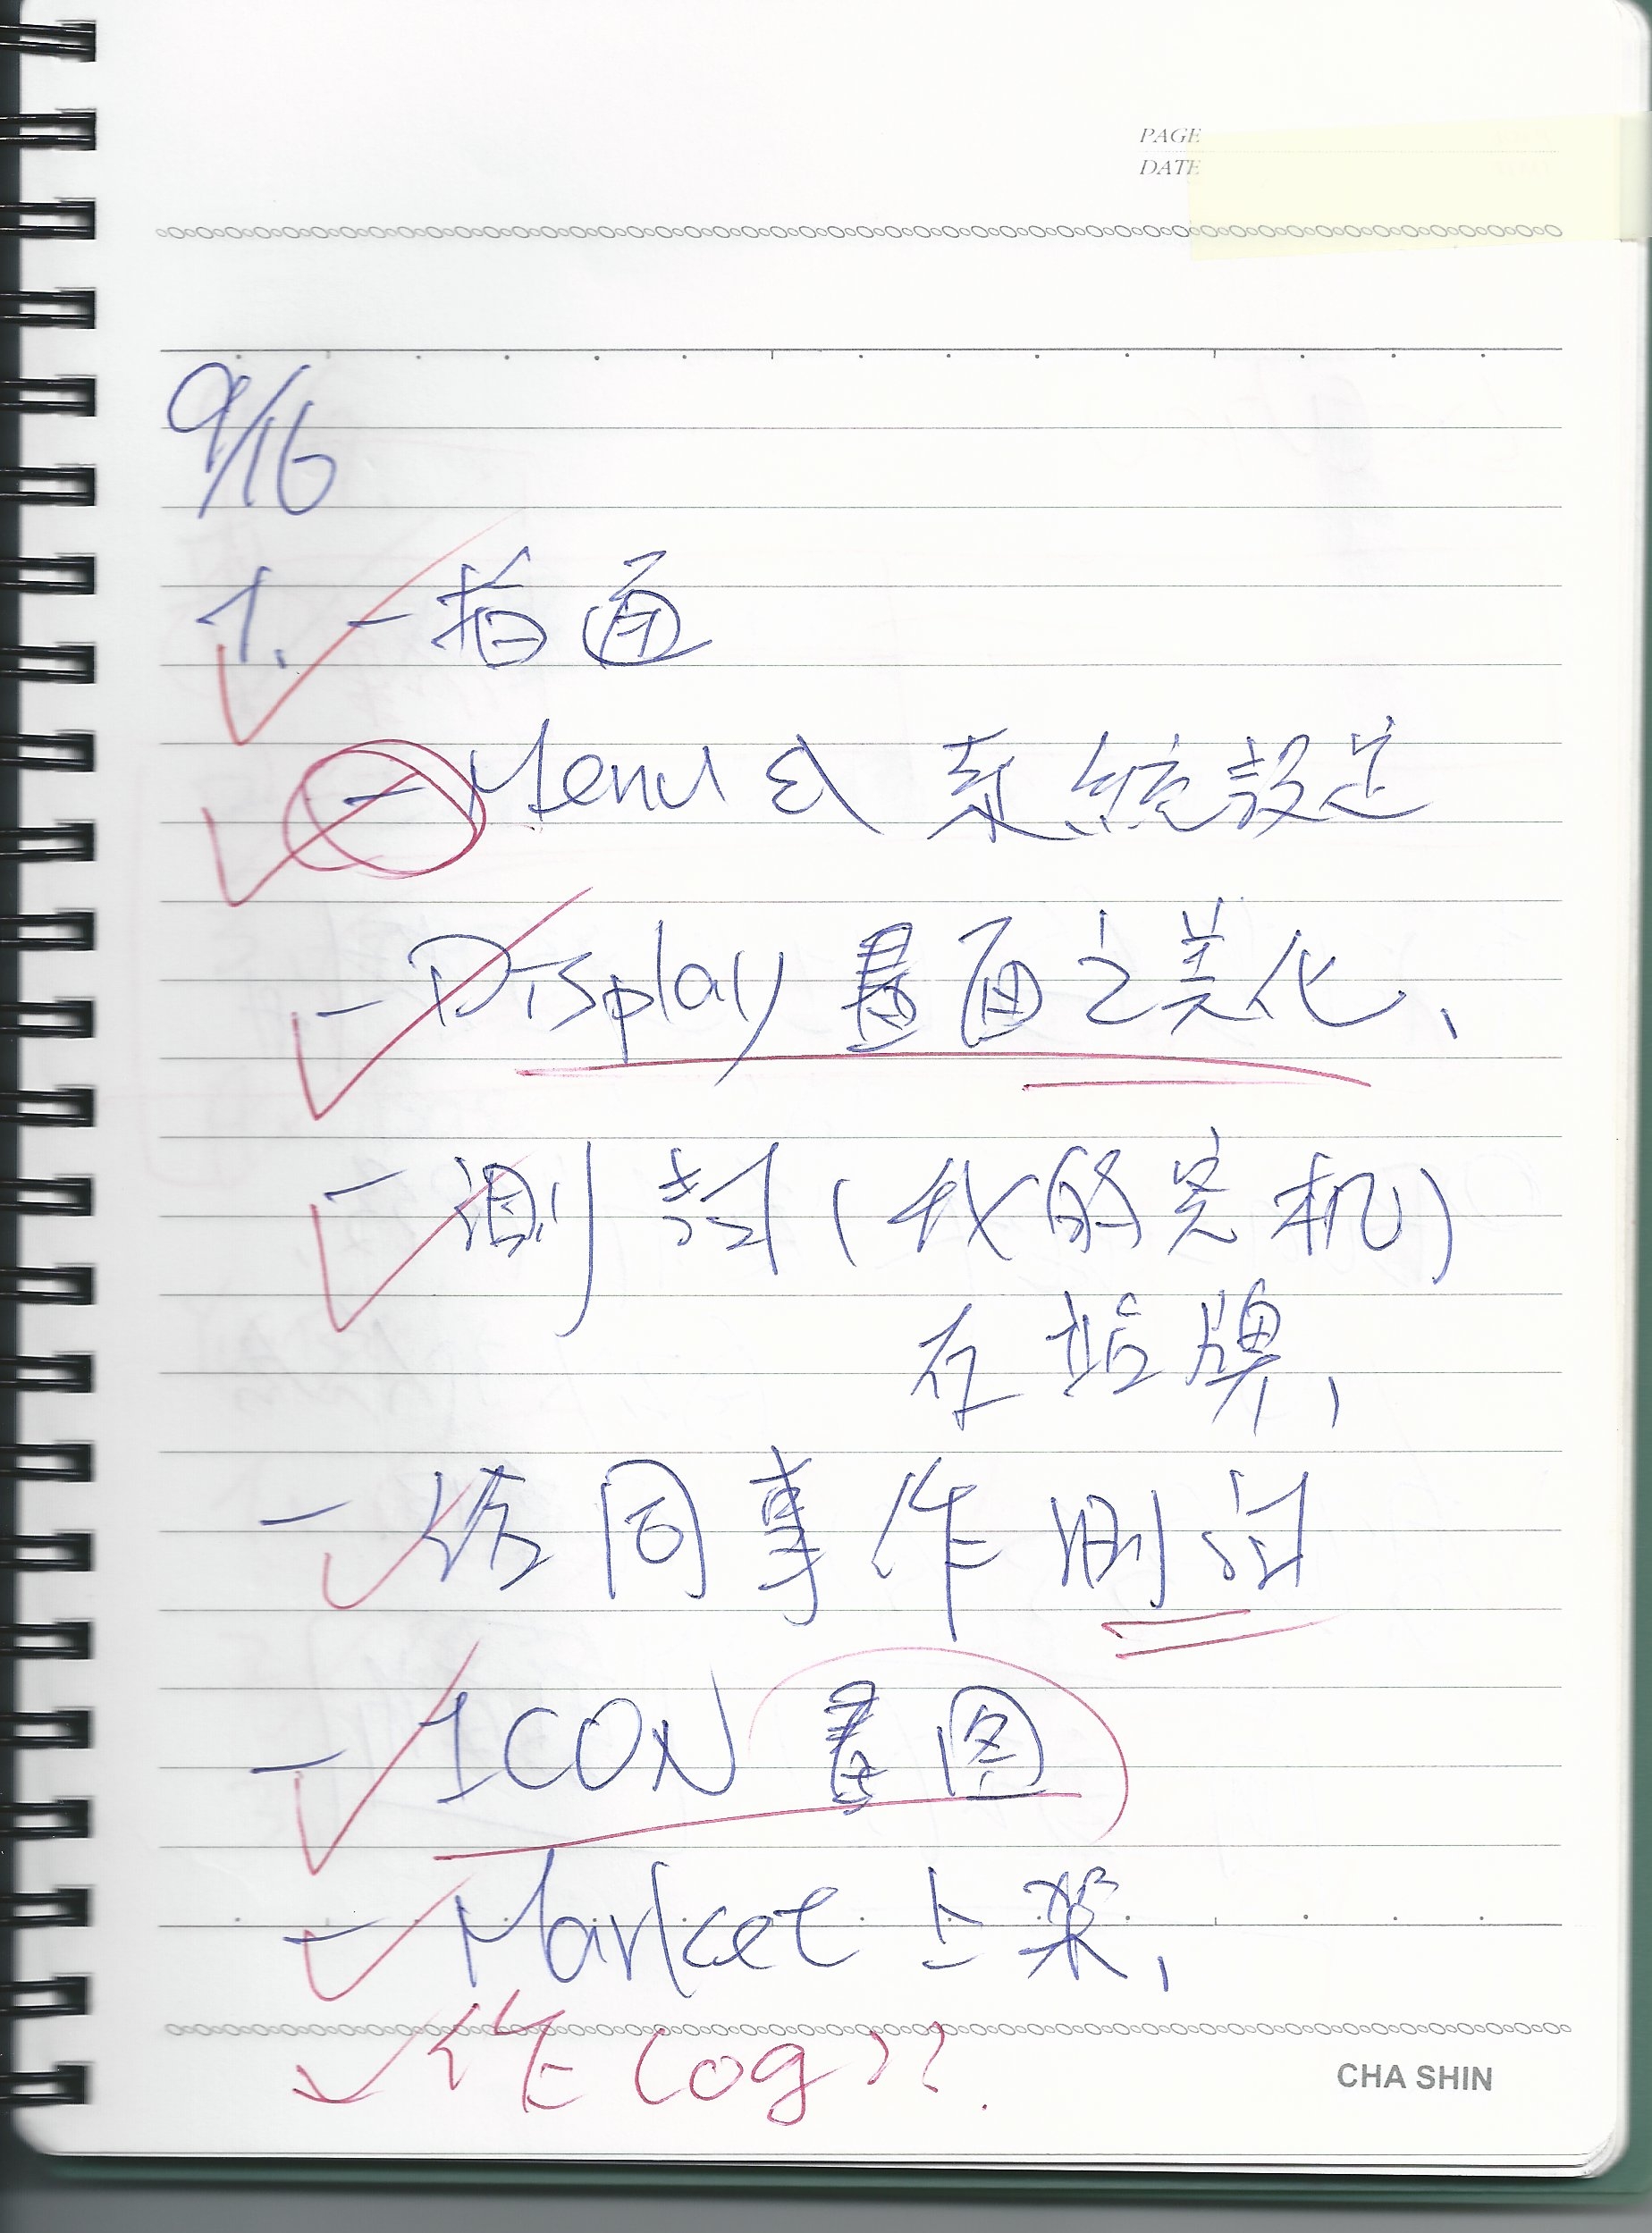 PAGE
DATE
9/16
1. - 拍面
- Menu 式 系統設定
- Display 畫面之美化、
- 測試(我的業机)
在站牌,
- 給同事作測試
- ICON 畫图
- Market 上架,
作 log??
CHA SHIN